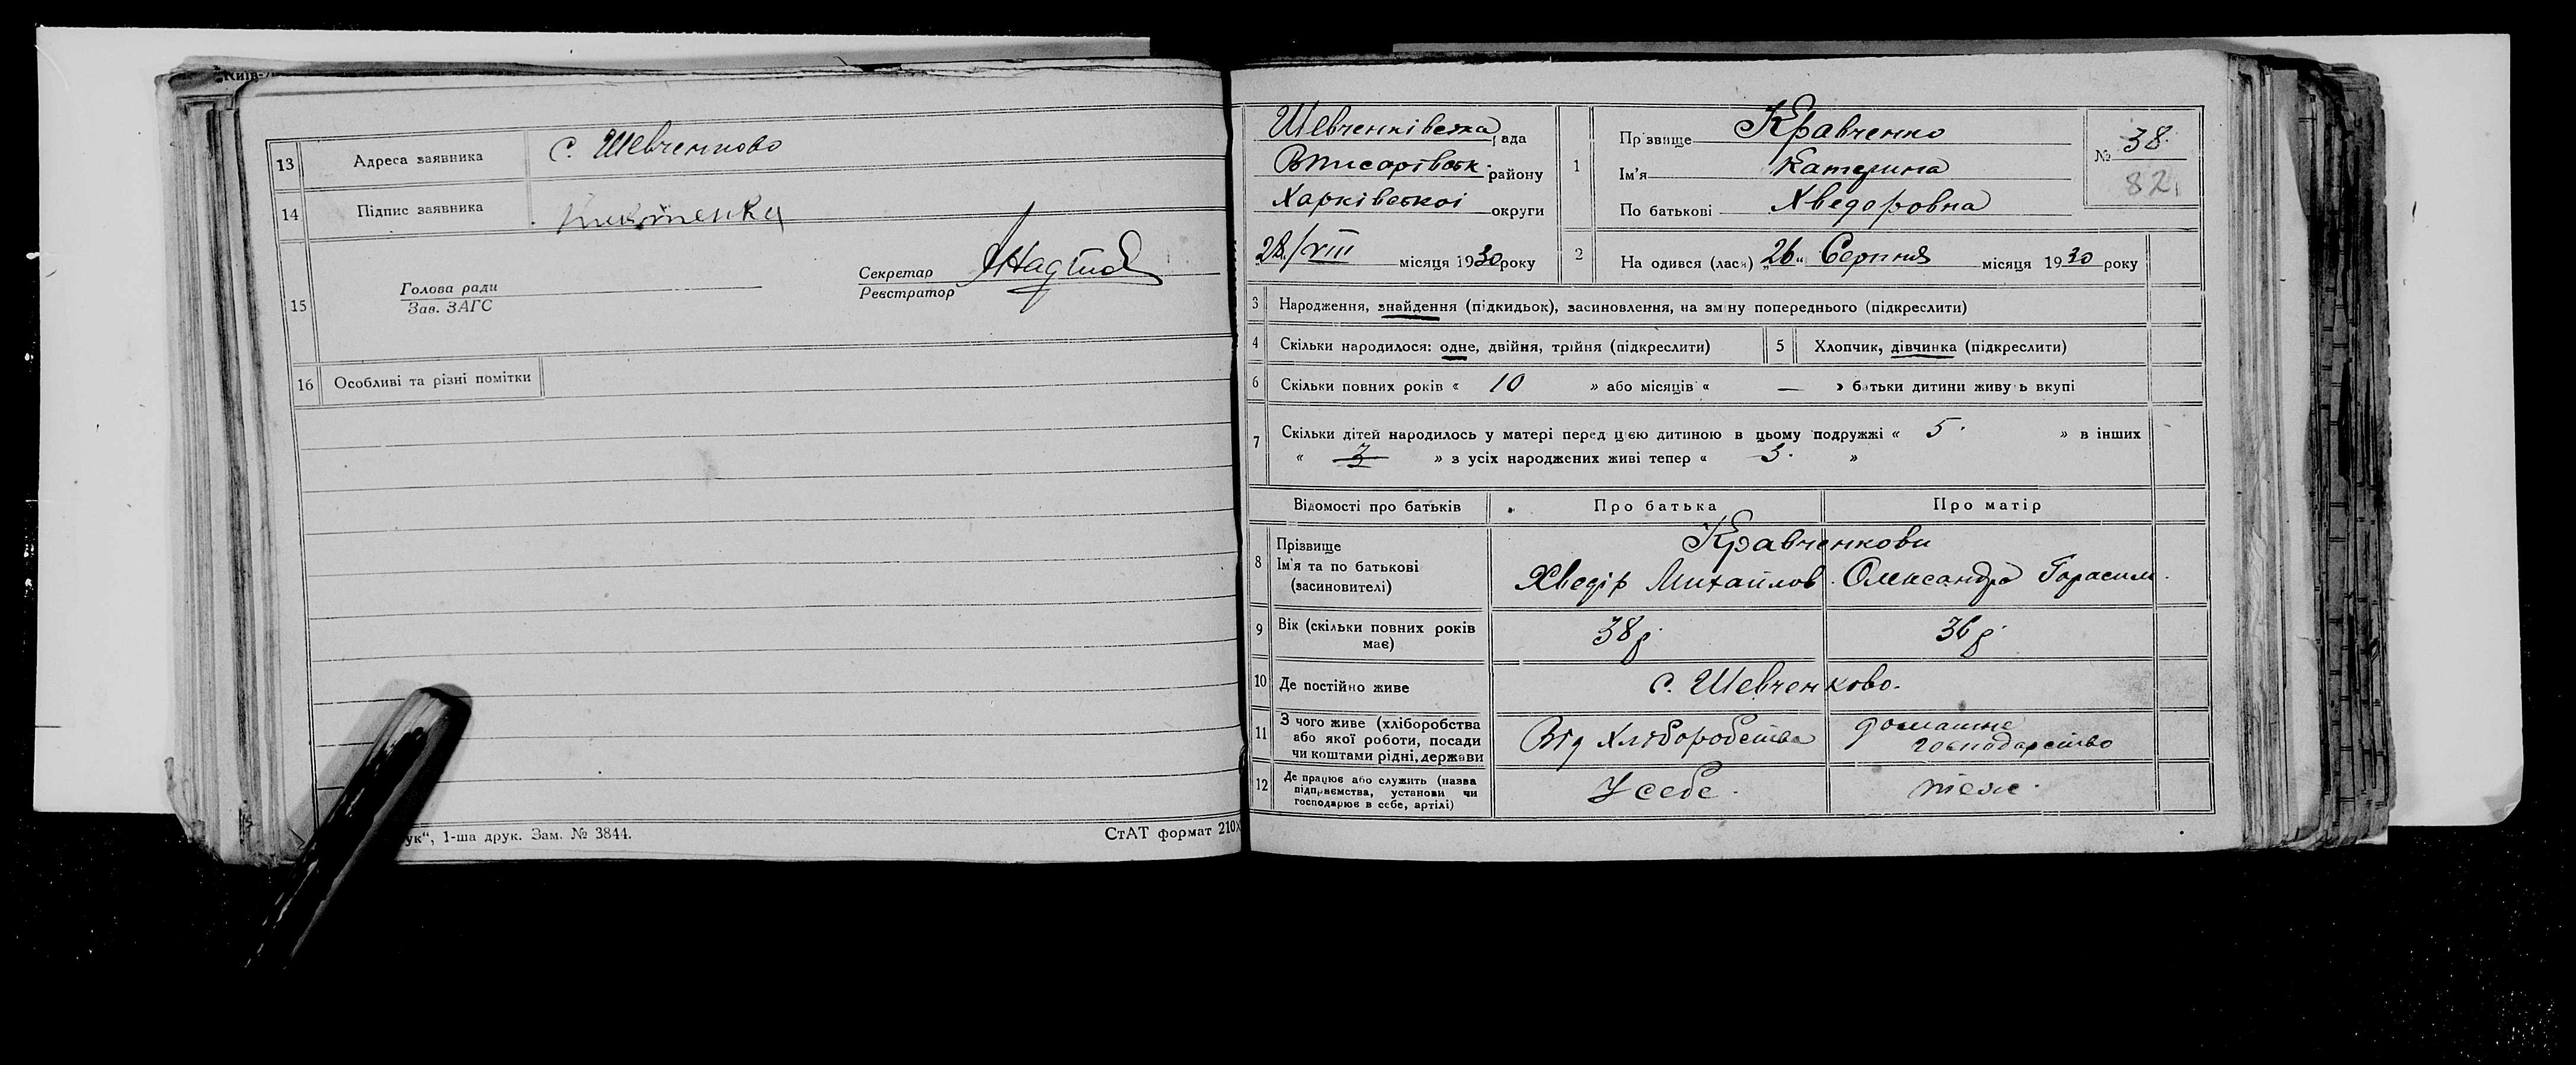 Київ-
13 Адреса заявника с. Шевченково
14 Підпис заявника
15 Голова ради
Зав. ЗАГС
Секретар
Реєстратор
16 Особливі та різні помітки
ук“, 1-ша друк. Зам. № 3844.
СтАТ формат 210х
Шевченківська рада
Вписарівськ. району
Харківської округи
28/VIII місяця 1930 року
1 Прізвище Кравченко
Ім'я Катерина
По батькові Хведоровна
№ 38.
82
2 На одився (лася) „26“ Серпня місяця 1930 року
3 Народження, знайдення (підкидьок), засиновлення, на зміну попереднього (підкреслити)
4 Скільки народилося: одне, двійня, трійня (підкреслити)
5 Хлопчик, дівчинка (підкреслити)
6 Скільки повних років « 10 » або місяців « — » батьки дитини живуть вкупі
7 Скільки дітей народилось у матері перед цією дитиною в цьому подружжі « 5. » в інших
« » з усіх народжених живі тепер « 3. »
Відомості про батьків Про батька Про матір
8 Прізвище
Ім'я та по батькові
(засиновителі)
Кравченкови
Хведір Михайлов. Олександра Гарасим.
9 Вік (скільки повних років
має)
38 р. 36 р.
10 Де постійно живе с. Шевченково.
11 З чого живе (хліборобства
або якої роботи, посади
чи коштами рідні, держави
Від хліборобства домашне
господарство
12 Де працює або служить (назва
підприємства, установи чи
господарює в себе, артілі)
У себе. теж.